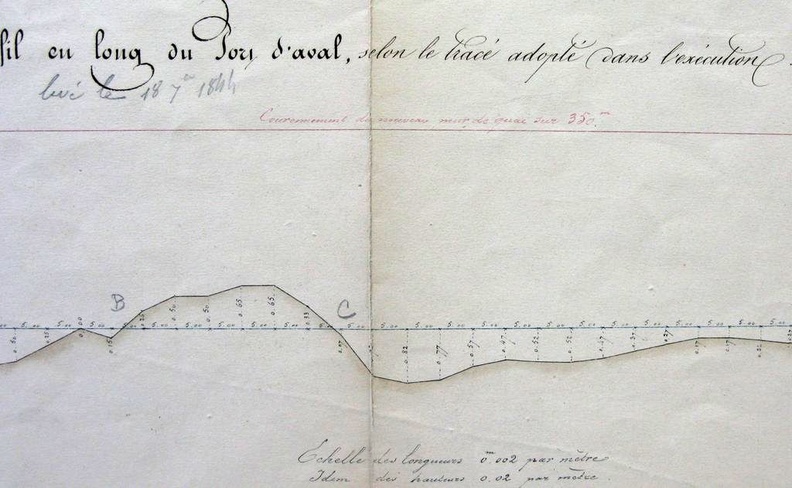 fil en long du Port d'aval, selon le tracé adopté dans l'exécution.
levé le 18 7bre 1844
Couronnement du nouveau mur de quai sur 350m.
B
C
5.00 5.00 5.00 5.00 5.00 5.00 5.00 5.00 5.00 5.00 5.00 5.00 5.00 5.00 5.00 5.00 5.00 5.00 5.00 5.00 5.00 5.00 5.00
0.50 0.50 0.65 0.65 0.33 0.82 0.77 0.57 0.47 0.52 0.52 0.47 0.37 0.27 0.17 0.17
Échelle des longueurs 0m.002 par mètre
Idem des hauteurs 0.02 par mètre.